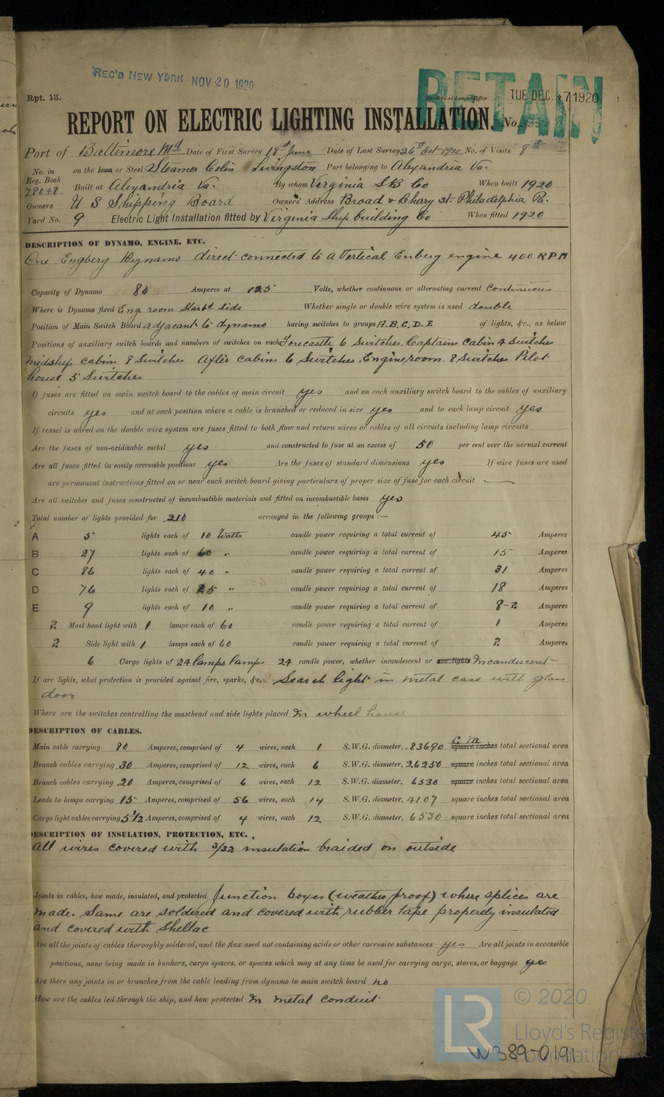 REC'D NEW YORK NOV 20 1920
RETAIN
Rpt. 13.
TUE. DEC. 7 1920
REPORT ON ELECTRIC LIGHTING INSTALLATION. No.
Port of Baltimore Md Date of First Survey 18th June Date of Last Survey 26th Oct 1920 No. of Visits 8
No. in Reg. Book 78048 on the Iron or Steel Steamer Colin Livingston Port belonging to Alexandria Va.
Built at Alexandria Va. By whom Virginia S B Co When built 1920
Owners U S Shipping Board Owners' Address Broad & Cherry St. Philadelphia Pa.
Yard No. 9 Electric Light Installation fitted by Virginia Ship building Co When fitted 1920
DESCRIPTION OF DYNAMO, ENGINE, ETC.
One Engberg Dynamo direct connected to a Vertical Enberg engine 400 R P M
Capacity of Dynamo 80 Amperes at 125 Volts, whether continuous or alternating current Continuous
Where is Dynamo fixed Eng room Starbd side Whether single or double wire system is used double
Position of Main Switch Board adjacent to dynamo having switches to groups A.B.C.D.E of lights, &c., as below
Positions of auxiliary switch boards and numbers of switches on each Forecastle 6 Switches. Captains cabin 4 Switches
midship cabin 8 Switches After cabins 6 Switches. Engineroom. 8 Switches Pilot
house 5 Switches
If fuses are fitted on main switch board to the cables of main circuit yes and on each auxiliary switch board to the cables of auxiliary
circuits yes and at each position where a cable is branched or reduced in size yes and to each lamp circuit yes
If vessel is wired on the double wire system are fuses fitted to both flow and return wires or cables of all circuits including lamp circuits
Are the fuses of non-oxidizable metal yes and constructed to fuse at an excess of 50 per cent over the normal current
Are all fuses fitted in easily accessible positions yes Are the fuses of standard dimensions yes If wire fuses are used
are permanent instructions fitted on or near each switch board giving particulars of proper size of fuse for each circuit —
Are all switches and fuses constructed of incombustible materials and fitted on incombustible bases yes
Total number of lights provided for 210 arranged in the following groups:—
A 5 lights each of 10 Watts candle power requiring a total current of 45 Amperes
B 27 lights each of 60 " candle power requiring a total current of 15 Amperes
C 86 lights each of 40 " candle power requiring a total current of 31 Amperes
D 76 lights each of 25 " candle power requiring a total current of 18 Amperes
E 9 lights each of 10 " candle power requiring a total current of 8-2 Amperes
2 Mast head light with 1 lamps each of 60 candle power requiring a total current of 1 Amperes
2 Side light with 1 lamps each of 60 candle power requiring a total current of 2 Amperes
6 Cargo lights of 24 Lamps Lamps 24 candle power, whether incandescent or arc lights Incandescent
If arc lights, what protection is provided against fire, sparks, &c. Search light in metal case with glass
door
Where are the switches controlling the masthead and side lights placed In wheel house
DESCRIPTION OF CABLES.
Main cable carrying 80 Amperes, comprised of 4 wires, each 1 S.W.G. diameter, .83690 C M square inches total sectional area
Branch cables carrying 30 Amperes, comprised of 12 wires, each 6 S.W.G. diameter, 26250 square inches total sectional area
Branch cables carrying 20 Amperes, comprised of 6 wires, each 12 S.W.G. diameter, 6530 square inches total sectional area
Leads to lamps carrying 15 Amperes, comprised of 56 wires, each 14 S.W.G. diameter, 4107 square inches total sectional area
Cargo light cables carrying 5 1/2 Amperes, comprised of 4 wires, each 12 S.W.G. diameter, 6530 square inches total sectional area
DESCRIPTION OF INSULATION, PROTECTION, ETC.
All wires covered with 3/32 insulation braided on outside
Joints in cables, how made, insulated, and protected Junction boxes (weather proof) where splices are
made. Same are soldered and covered with rubber tape properly insulated
and covered with Shellac
Are all the joints of cables thoroughly soldered, and the flux used not containing acids or other corrosive substances yes Are all joints in accessible
positions, none being made in bunkers, cargo spaces, or spaces which may at any time be used for carrying cargo, stores, or baggage yes
Are there any joints in or branches from the cable leading from dynamo to main switch board no
How are the cables led through the ship, and how protected In metal conduit
LR © 2020
Lloyd's Register
Foundation
W389-0191